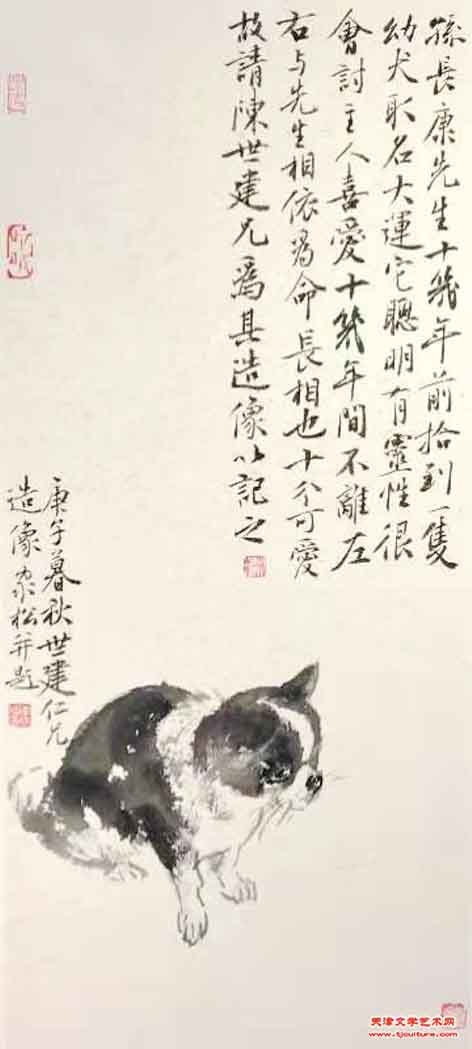 孫長康先生十幾年前拾到一隻
幼犬取名大運它聰明有靈性很
會討主人喜愛十幾年間不離左
右与先生相依為命長相也十分可愛
故請陳世建兄為其造像以記之
庚子暮秋世建仁兄
造像家松并題
天津文学艺术网
www.tjculture.com